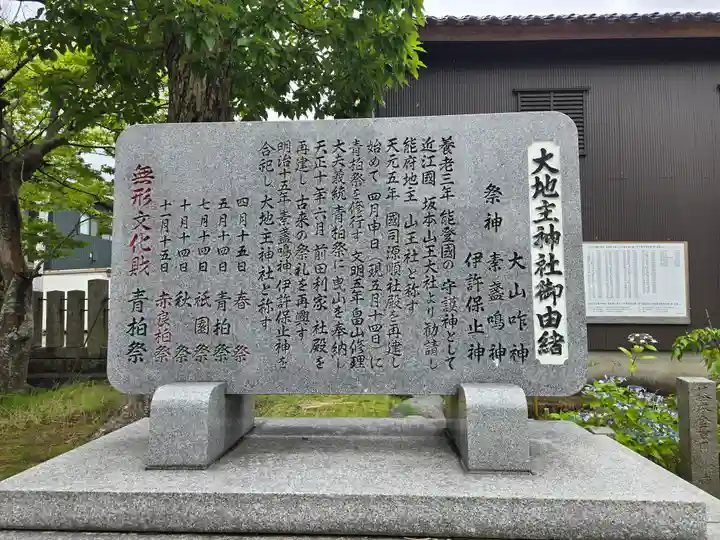 大地主神社御由緒
祭神 大山咋神
素盞鳴神
伊許保止神
養老三年 能登國の 守護神として
近江國 坂本山王大社より 勧請し
能府地主 山王社と称す
天元五年 國司源順社殿を再建し
始めて 四月申日(現五月十四日)に
青柏祭を修行す 文明五年 畠山修理
大夫義統 青柏祭に 曳山を 奉納し
天正十年六月 前田利家 社殿を
再建し 古来の祭礼を再興す
明治十五年 素盞鳴神 伊許保止神を
合祀し 大地主神社と称す
四月十五日 春祭
五月十四日 青柏祭
七月十四日 祇園祭
十月十四日 秋祭
十一月十五日 赤良柏祭
無形文化財 青柏祭